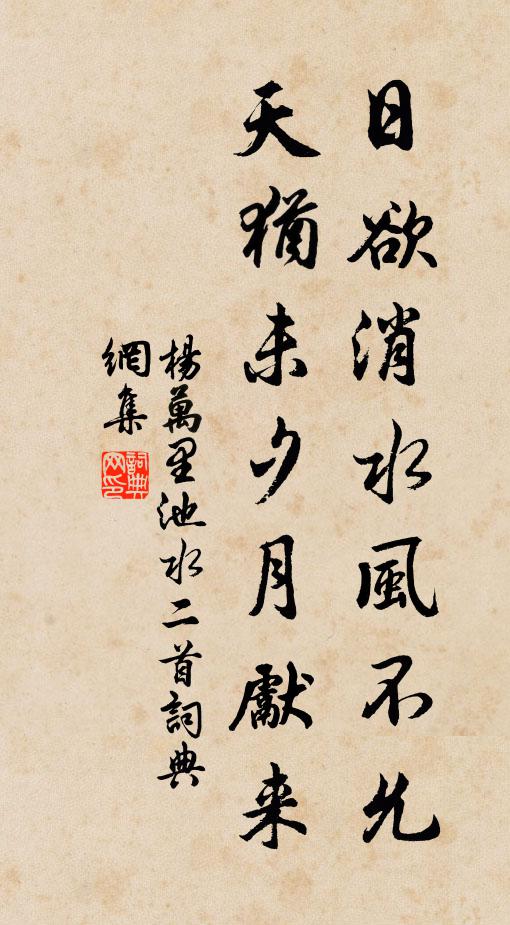 日欲消水風不允
天猶未夕月獻来
楊萬里池水二首詞典
網集
詞典
网印